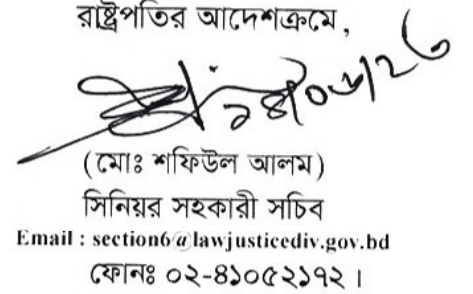 রাষ্ট্রপতির আদেশক্রমে,
(মোঃ শফিউল আলম)
সিনিয়র সহকারী সচিব
Email : section6@lawjusticediv.gov.bd
ফোনঃ ০২-৪১০৫২১৭২।